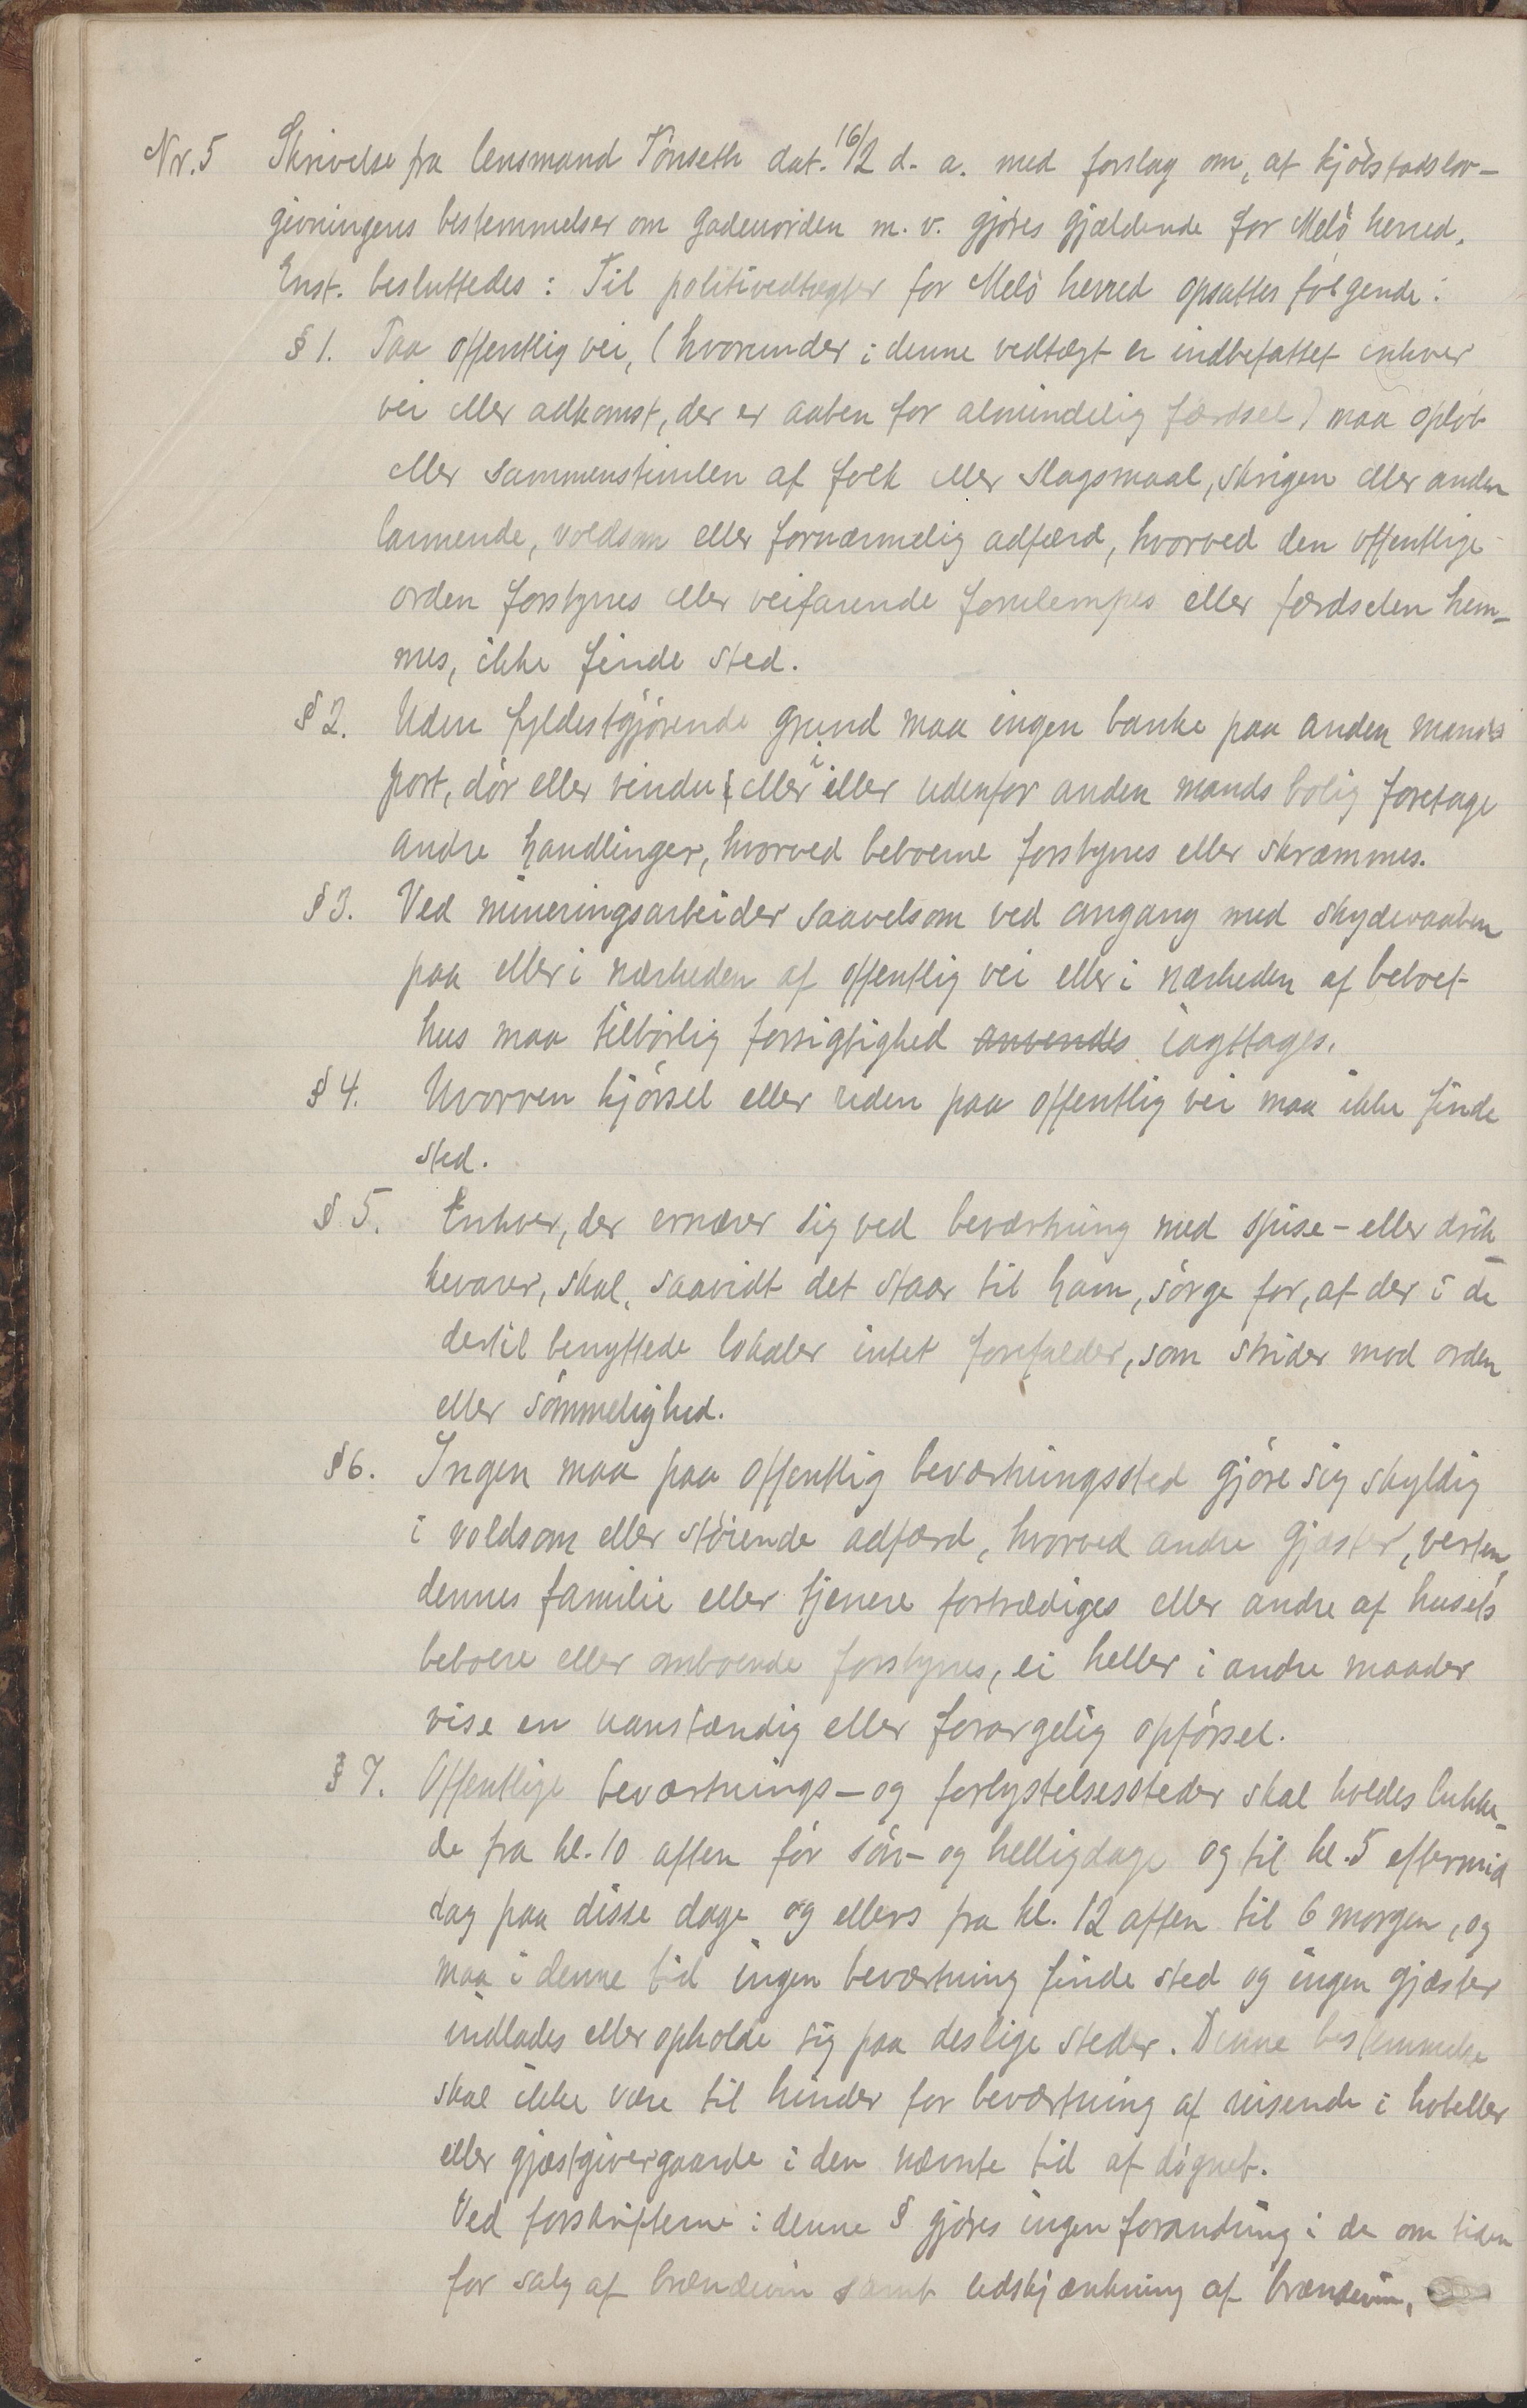 Nr. 5 Skrivelse fra lensmand Tönseth dat. 16/2 d. a. med forslag om, at kjöbstadslov-
givningens bestemmelser om gadeuorden m. v. gjöres gjældende for Melö herred.
Enst. besluttedes: Til politivedtægter for Melö herred opsattes fölgende:
§ 1. Paa offentlig vei, (hvorunder i denne vedtægt er indbefattet enhver
vei eller adkomst, der er aaben for almindelig færdsel) maa opløb
eller sammenstimlen af folk eller slagsmaal, skrigen eller anden
larmende, voldsom eller fornærmelig adfærd, hvorved den offentlige
orden forstyres eller veifarende forulempes eller færdselen hem-
mes, ikke finde sted.
§ 2. Uden fyldestgjörende grund maa ingen banke paa anden mands
port, dör eller vindu eller i eller udenfor anden mands bolig foretage
andre handlinger, hvorved beboerne forstyres eller skræmmes.
§ 3. Ved mineringsarbeider saavelsom ved omgang med skydevaaben
paa eller i nærheden af offentlig vei eller i nærheden af beboet
hus maa tilbörlig forsigtighed anvendes iagttages.
§ 4. Uvorren kjörsel eller riden paa offentlig vei maa ikke finde
sted.
§ 5. Enhver, der ernærer sig ved beværtning med spise- eller drik-
kevarer, skal, saavidt det staar til ham, sörge for, at der i de
dertil benyttede lokaler intet forefalder, som strider mod orden
eller sömmelighed.
§ 6. Ingen maa paa offentlig beværtningssted gjöre sig skyldig
i voldsom eller stöiende adfærd, hvorved andre gjæster, verten,
dennes familie eller tjenere fortrædiges eller andre af husets
beboere eller omboende forstyres, ei heller i andre maader
vise en uanstændig eller forargelig opförsel.
§ 7. Offentlige beværtnings- og forlystelsessteder skal holdes lukke-
de fra kl. 10 aften för sön- og helligdage og til kl. 5 eftermid
dag paa disse dage og ellers fra kl. 12 aften til 6 morgen, og
maa i denne tid ingen beværtning finde sted og ingen gjæster
indlades eller opholde sig paa deslige steder. Denne bestemmelse
skal ikke være til hinder for beværtning af reisende i hoteller
eller gjæstgivergaarde i den nævnte tid af dögnet.
Ved forskrifterne i denne § gjöres ingen forandring i de om tiden
for salg af brændevin samt udskjænkning af brændevin,